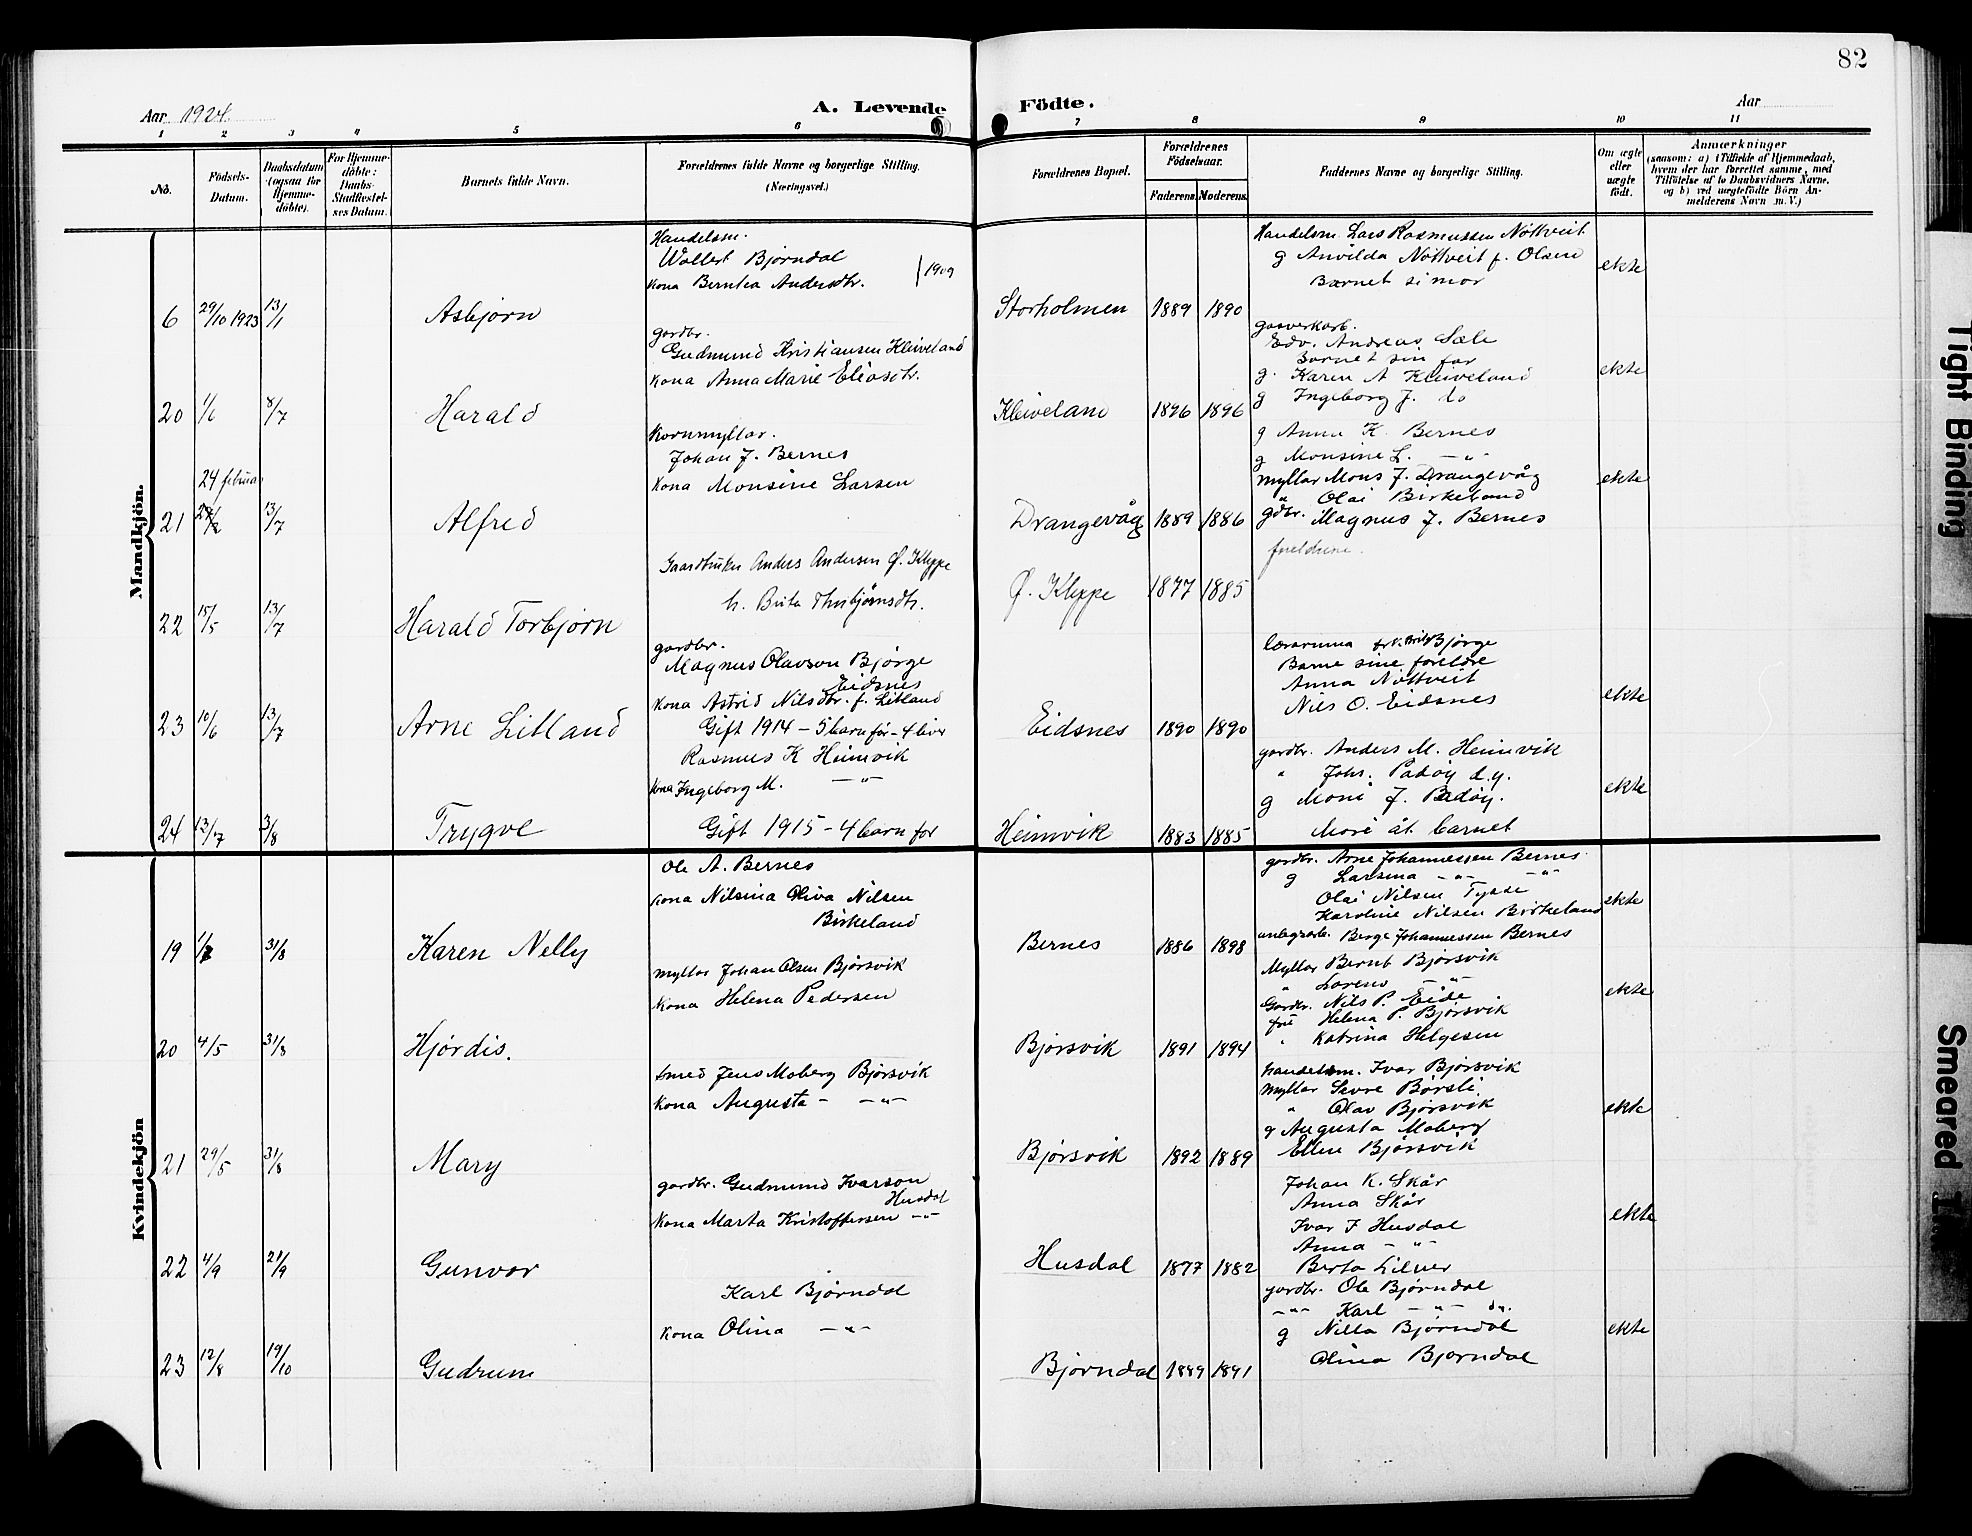 82
Aar 1924.
A. Levende Födte.
Aar
1 2 3 4 5 6 7 8 9 10 11
No.
Födsels-Datum.
Daabsdatum (ogsaa for Hjemmedöbte).
For Hjemmedöbte: Daabs-Stadfæstelses Datum.
Barnets fulde Navn.
Forældrenes fulde Navne og borgerlige Stilling.
(Næringsvei.)
Forældrenes Bopæl.
Forældrenes Födselsaar.
Faderens. Moderens.
Faddernes Navne og borgerlige Stilling.
Om ægte eller uægte födt.
Anmærkninger
(saasom: a) i Tilfælde af Hjemmedaab, hvem der har forrettet samme, med Tilföielse af to Daabsvidners Navne, og b) ved uægtefödte Börn Anmelderens Navn m. V.)
Mandkjön.
Handelsm.
Wollert Bjørndal
Kona Berntea Andersdtr. 1909
6 29/10 1923 13/1 Asbjørn
Storholmen 1889 1890
Handelsm. Lars Rasmussen Nottveit
g Anvilda Nottveit f. Olsen
Barnet si mor
ekte
gardbr.
Gudmund Kristiansen Kleiveland
Kona Anna Marie Eliasdtr.
20 1/1 8/7 Harald
Kleiveland 1896 1896
gasverkarb.
Edv. Andreas Sæle
Barnet sin far
g. Karen A Kleiveland
g Ingeborg J. do
ekte
Kornmyllar.
Johan J. Bernes
Kona Monsine Larsen
24 februar
21 24/2 13/7 Alfred
Drangevåg 1889 1886
g Anna K. Bernes
g Monsine L. -"-
myllar Mons J. Drangevåg
" Olai Birkeland
gdbr. Magnus J. Bernes
ekte
Gaardbruker Anders Andersen Ø. Kleppe
h. Brita Thorbjørnsdtr.
22 15/5 13/7 Harald Torbjørn
Ø. Kleppe 1877 1885
foreldrene.
gardbr.
Magnus Olavson Bjørge
Eidsnes
Kona Astrid Nilsdtr. f. Litland
Gift 1914 - 5 barn før - 4 liver
23 10/6 13/7 Arne Litland
Eidsnes 1890 1890
lærarinna Brita Bjørge
Barne sine foreldre
Anna Nottveit
Nils O. Eidsnes
ekte
Rasmus K Heimvik
Kona Ingeborg M. -"-
Gift 1915 - 4 barn før
24 13/7 3/8 Trygve
Heimvik 1883 1885
gardbr. Anders M. Heimvik
" Johs. Padøy d.y.
g Moni J. Padøy.
Mori åt barnet
ekte
Kvindekjön
Ole A. Bernes
Kona Nilsina Oliva Nilsen
Birkeland
19 31/8 Karen Nelly
Bernes 1886 1898
gardbr. Arne Johannessen Bernes
g Larsina -"- -"-
Olai Nilsen Tysse
Karoline Nilsen Birkeland
anlegsarb. Berge Johannessen Bernes
ekte
myllar Johan Olsen Bjørsvik
Kona Helena Pedersen
20 4/5 31/8 Hjørdis.
Bjørsvik 1891 1894
Myllar Bernt Bjørsvik
" Lorens -"-
Gardbr. Nils P. Eide
frü Helena P. Bjørsvik
" Katrina Helgesen
ekte
smed Jens Moberg Bjørsvik
Kona Augusta - -"-
21 29/5 31/8 Mary
Bjørsvik 1892 1889
handelsm. Ivar Bjørsvik
myllar Sevre Børsli
" Olav Bjørsvik
g Augusta Moberg
Ellen Bjørsvik
ekte
gardbr. Gudmund Ivarson
Husdal
Kona Marta Kristoffersen -"-
22 4/9 21/9 Gunvor
Husdal 1877 1882
Johan K. Skår
Anna Skår
Ivar J Husdal
Anna - "-
Berta Lilner
ekte
Karl Bjørndal
Kona Olina -"-
23 12/8 19/10 Gudrun
Bjørndal 1889 1891
gardbr. Ole Bjørndal
-"- Karl -"- dy.
g Nilla Bjørndal
Olina Bjørndal
ekte
Tight Binding
Smeared